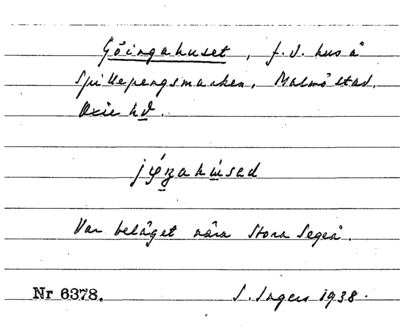 Göingahuset, f. d. hus å
Spillepengsmarken, Malmö stad.
Oxie hd.
jø̀ŋahʉ̀sad
Var beläget nära Stora Segeå.
Nr 6378. S. Ingers 1938.